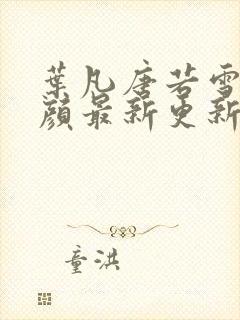 葉凡唐若雪
顏最新更新
童洪